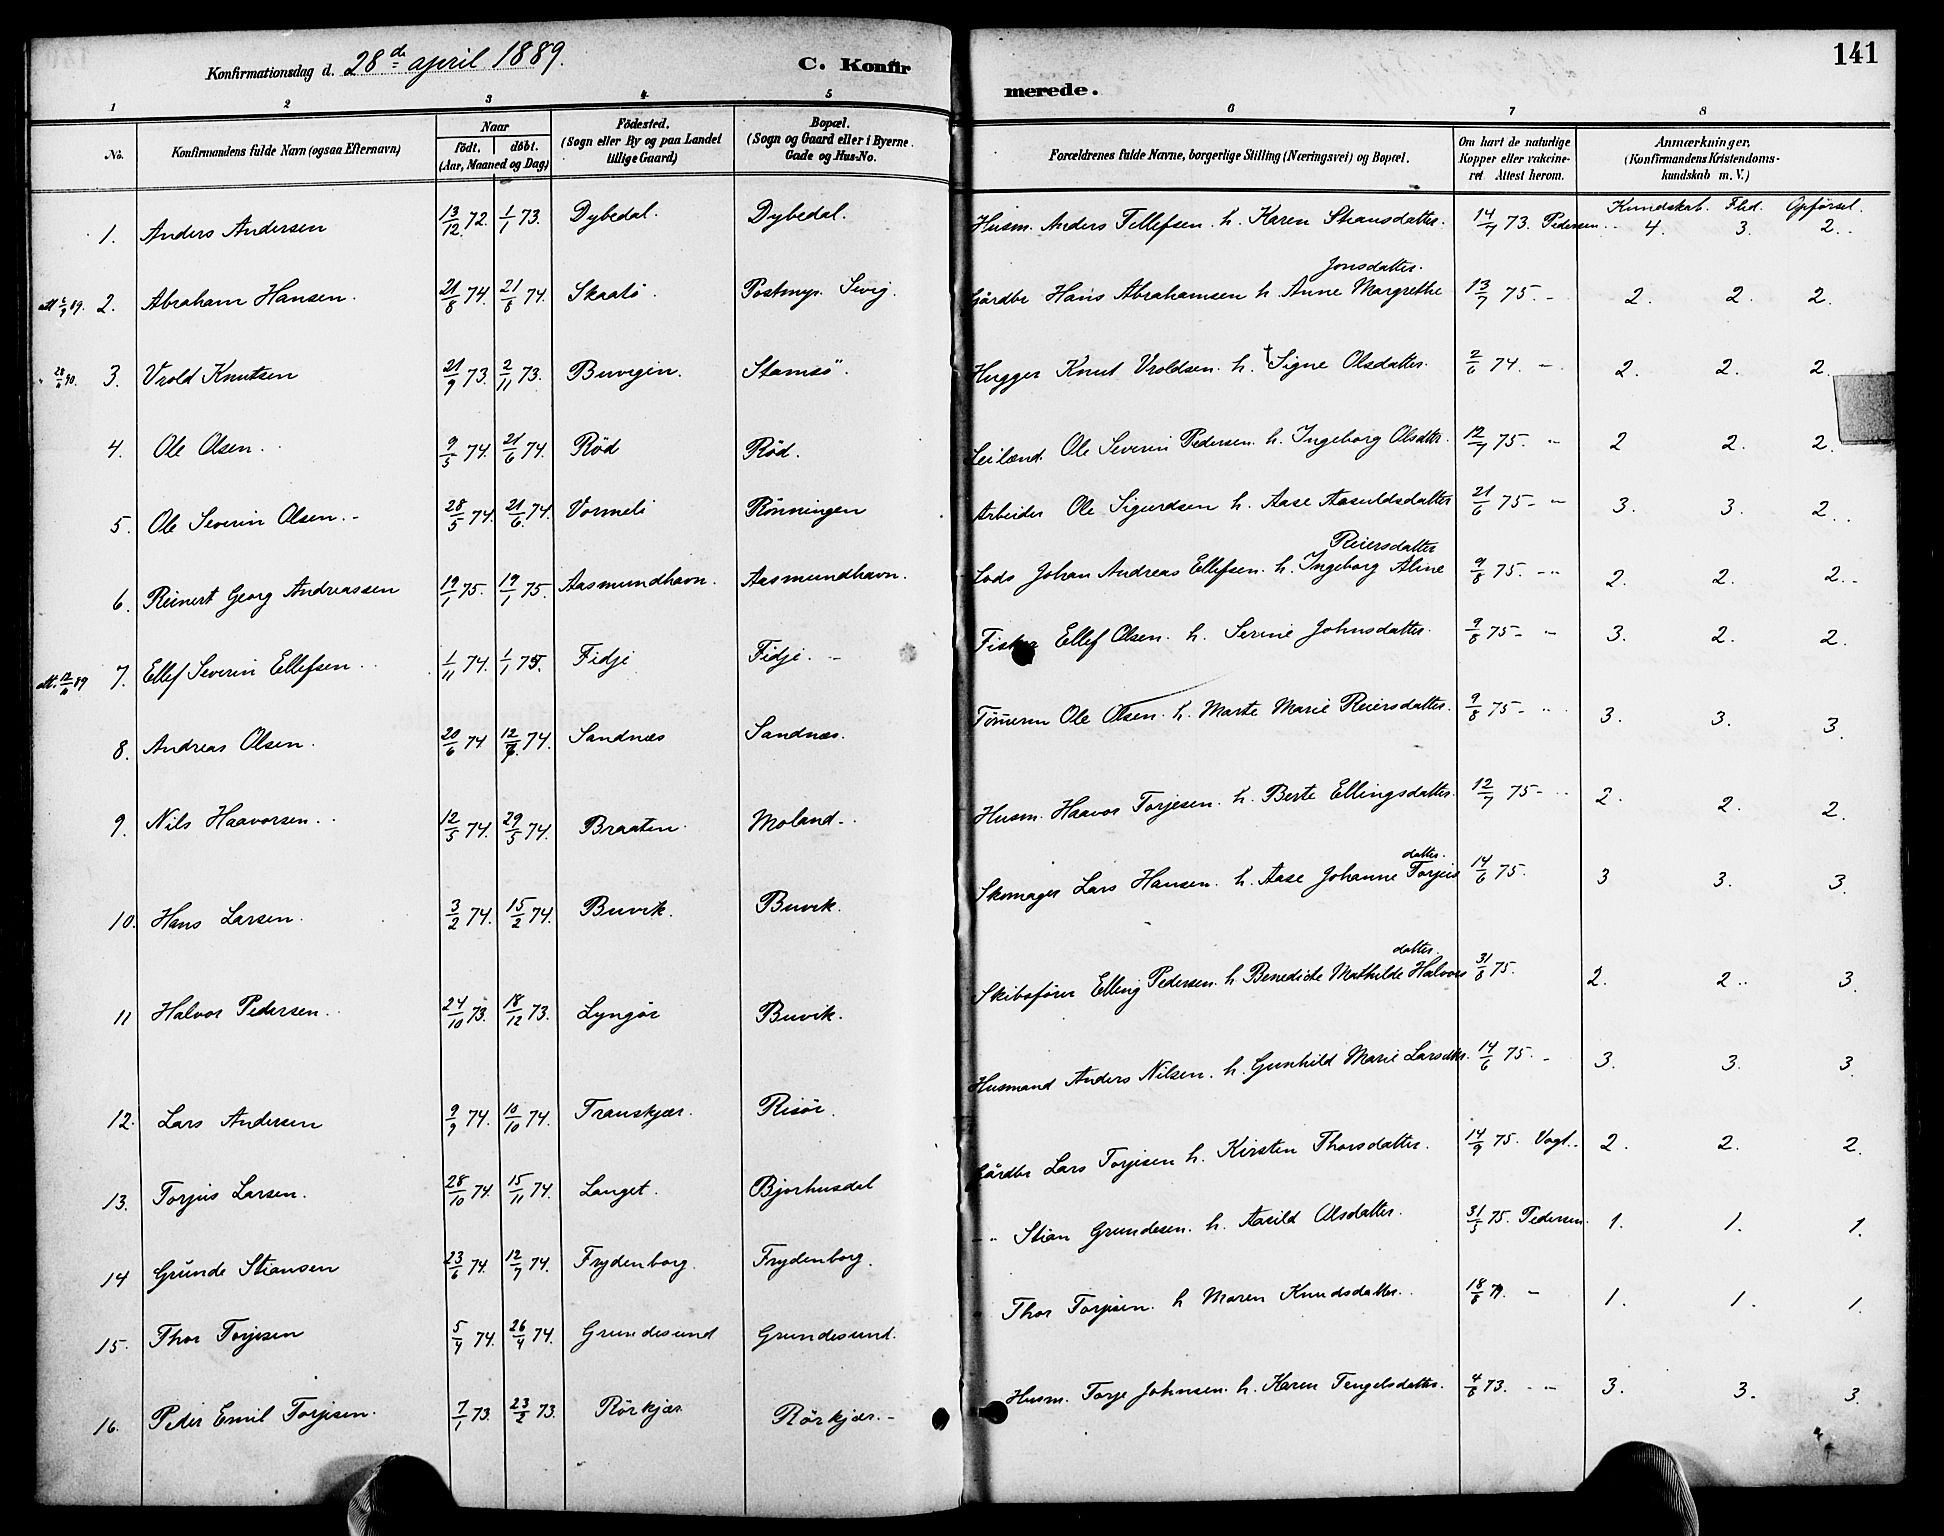 141
Konfirmationsdag d. 28de april 1889.
C. Konfirmerede.
1 2 3 4 5 6 7 8
No. Konfirmandens fulde Navn (ogsaa Efternavn) Naar født. døbt. (Aar, Maaned og Dag) Fødested. (Sogn eller By og paa Landet tillige Gaard) Bopæl. (Sogn og Gaard eller i Byerne Gade og Hus-No. Forældrenes fulde Navne, borgerlige Stilling (Næringsvei) og Bopæl. Om havt de naturlige Kopper eller vakcineret Attest herom. Anmærkninger, (Konfirmandens Kristendomskundskab m. V.)
Kundskab. Flid. Opførsel.
1. Anders Andersen 13/12 72. 1/1 73. Dybedal. Dybedal. Husm. Anders Tellefsen. h. Karen Stiansdatter. 14/7 73. Pedersen 4. 3. 2.
2. Abraham Hansen. 21/8 74. 21/8 74. Skaatö. Postmyr. Sevig. Gårdbr Hans Abrahamsen h. Anne Margrethe Jonsdatter. 13/7 75. 2. 2. 2.
3. Vrold Knutsen 21/9 73. 2/11 73. Buvigen. Stamsö. Hugger Knut Vroldsen. h. † Signe Olsdatter. 2/6 74. 2. 2. 2.
4. Ole Olsen. 9/5 74. 21/6 74. Rød Rød. Leilænd. Ole Severin Pedersen. h. Ingeborg Olsdtter. 12/7 75. 2 2. 2.
5. Ole Severin Olsen. 28/5 74. 21/6 74. Vormeli Rønningen Arbeider Ole Sigurdsen h. Aase Aasuldsdatter 21/6 75. 3. 3. 2.
6. Reinert Georg Andreassen 19/1 75. 19/1 75. Aasmundhavn. Aasmundhavn. Lods Johan Andreas Ellefsen. h. Ingeborg Aline Reiersdatter 9/8 75. 2. 2. 2.
7. Ellef Severin Ellefsen 1/11 74. 1/1 75. Fidje Fidje. Fisker Ellef Olsen. h. Serine Johnsdatter. 9/8 75. 3. 2. 2.
8. Andreas Olsen. 20/6 74 12/7 74. Sandnæs Sandnæs. Tømrem Ole Olsen. h. Marte Marie Reiersdatter. 9/8 75. 3. 3. 3.
9. Nils Haavorsen. 12/5 74. 29/5 74. Braaten. Moland. Husm. Haavor Torjesen. h. Berte Ellingsdatter. 12/7 75. 2. 2. 2.
10. Hans Larsen. 3/2 74. 15/2 74. Buvik. Buvik. Skomager Lars Hansen. h. Aase Johanne Torjusdatter. 14/6 75. 3 3. 3.
11 Halvor Pedersen. 24/10 73. 18/12 73. Lyngør Buvik. Skibsfører Elling Pedersen. h. Benedicte Mathilde Halvorsdatter. 31/8 75. 2. 2. 3.
12. Lars Andersen 9/9 74. 10/10 74. Transkjær. Risör. Husmand Anders Nilsen. h. Gunhild Marie Larsdtr. 14/6 75. 3. 3. 3.
13. Torjus Larsen. 28/10 74. 15/11 74. Langet. Bjorhusdal Gårdbr Lars Torjesen h. Kirsten Thorsdatter. 14/9 75. Vogt. 2. 2. 2.
14 Grunde Stiansen 23/6 74. 12/7 74. Frydenborg. Frydenborg. " Stian Grundesen. h. Aasild Olsdatter. 31/5 75. Pedersen. 1. 1. 1.
15. Thor Torjesen 5/4 74. 26/4 74. Grundesund Grundesund. Thor Torjesen. h Maren Knudsdatter. 1. 1. 1.
16. Peder Emil Torjesen. 7/1 73. 23/2 73. Rörkjær Rörkjær. Husm. Torje Johnsen. h. Karen Tengelsdatter. 4/8 73. 3. 3. 3.